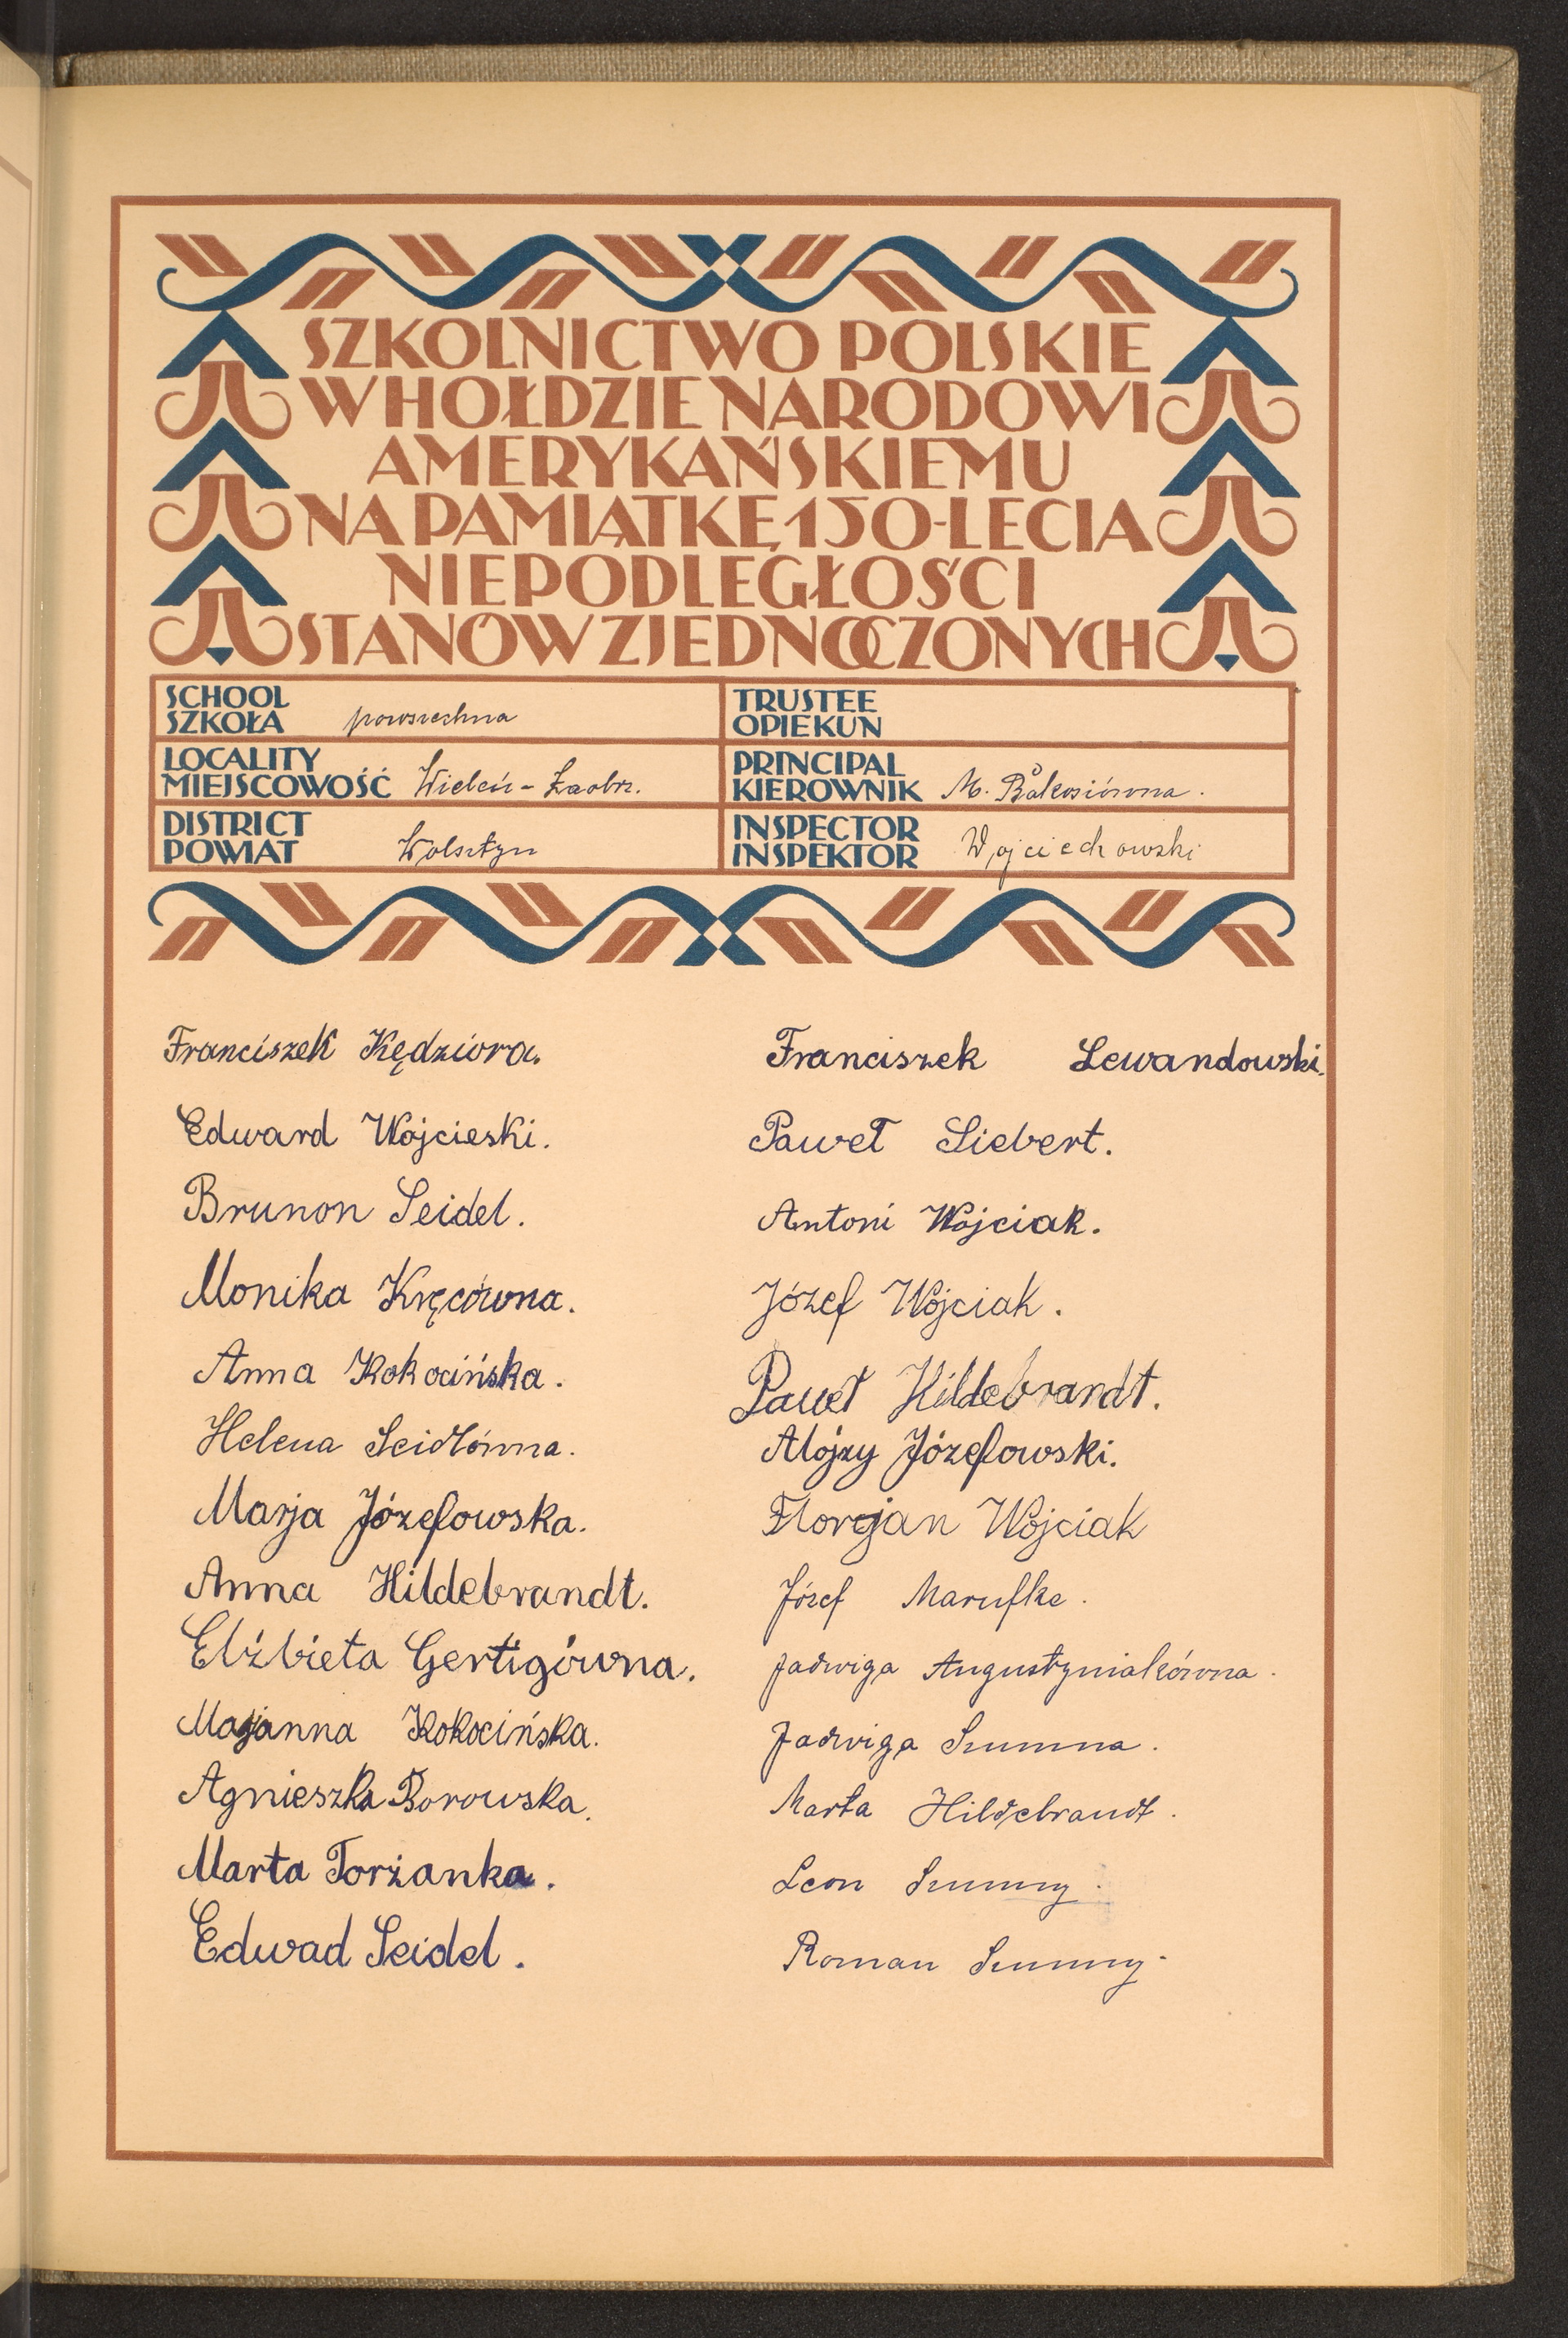 SZKOLNICTWO POLSKIE
W HOŁDZIE NARODOWI
AMERYKAŃSKIEMU
NA PAMIĄTKĘ 150-LECIA
NIEPODLEGŁOŚCI
STANÓW ZJEDNOCZONYCH
SCHOOL
SZKOŁA powszechna
TRUSTEE
OPIEKUN
LOCALITY
MIEJSCOWOŚĆ Wieleń - Zaobrz.
PRINCIPAL
KIEROWNIK M. Bąkosiówna.
DISTRICT
POWIAT Wolsztyn
INSPECTOR
INSPEKTOR Wojciechowski
Franciszek Kędziora.
Edward Wojcieski.
Brunon Seidel.
Monika Kręcówna.
Anna Kokocińska.
Helena Seidlówna.
Marja Józefowska.
Anna Hildebrandt.
Elżbieta Gertigówna.
Marjanna Kokocińska.
Agnieszka Borowska.
Marta Torżanka.
Edwad Seidel.
Franciszek Lewandowski.
Paweł Siebert.
Antoni Wojciak.
Józef Wójciak.
Paweł Hildebrandt.
Alojzy Józefowski.
Florjan Wójciak
Józef Marufke.
Jadwiga Augustyniakówna.
Jadwiga Szumna.
Marta Hildebrandt.
Leon Szumny.
Roman Szumny.